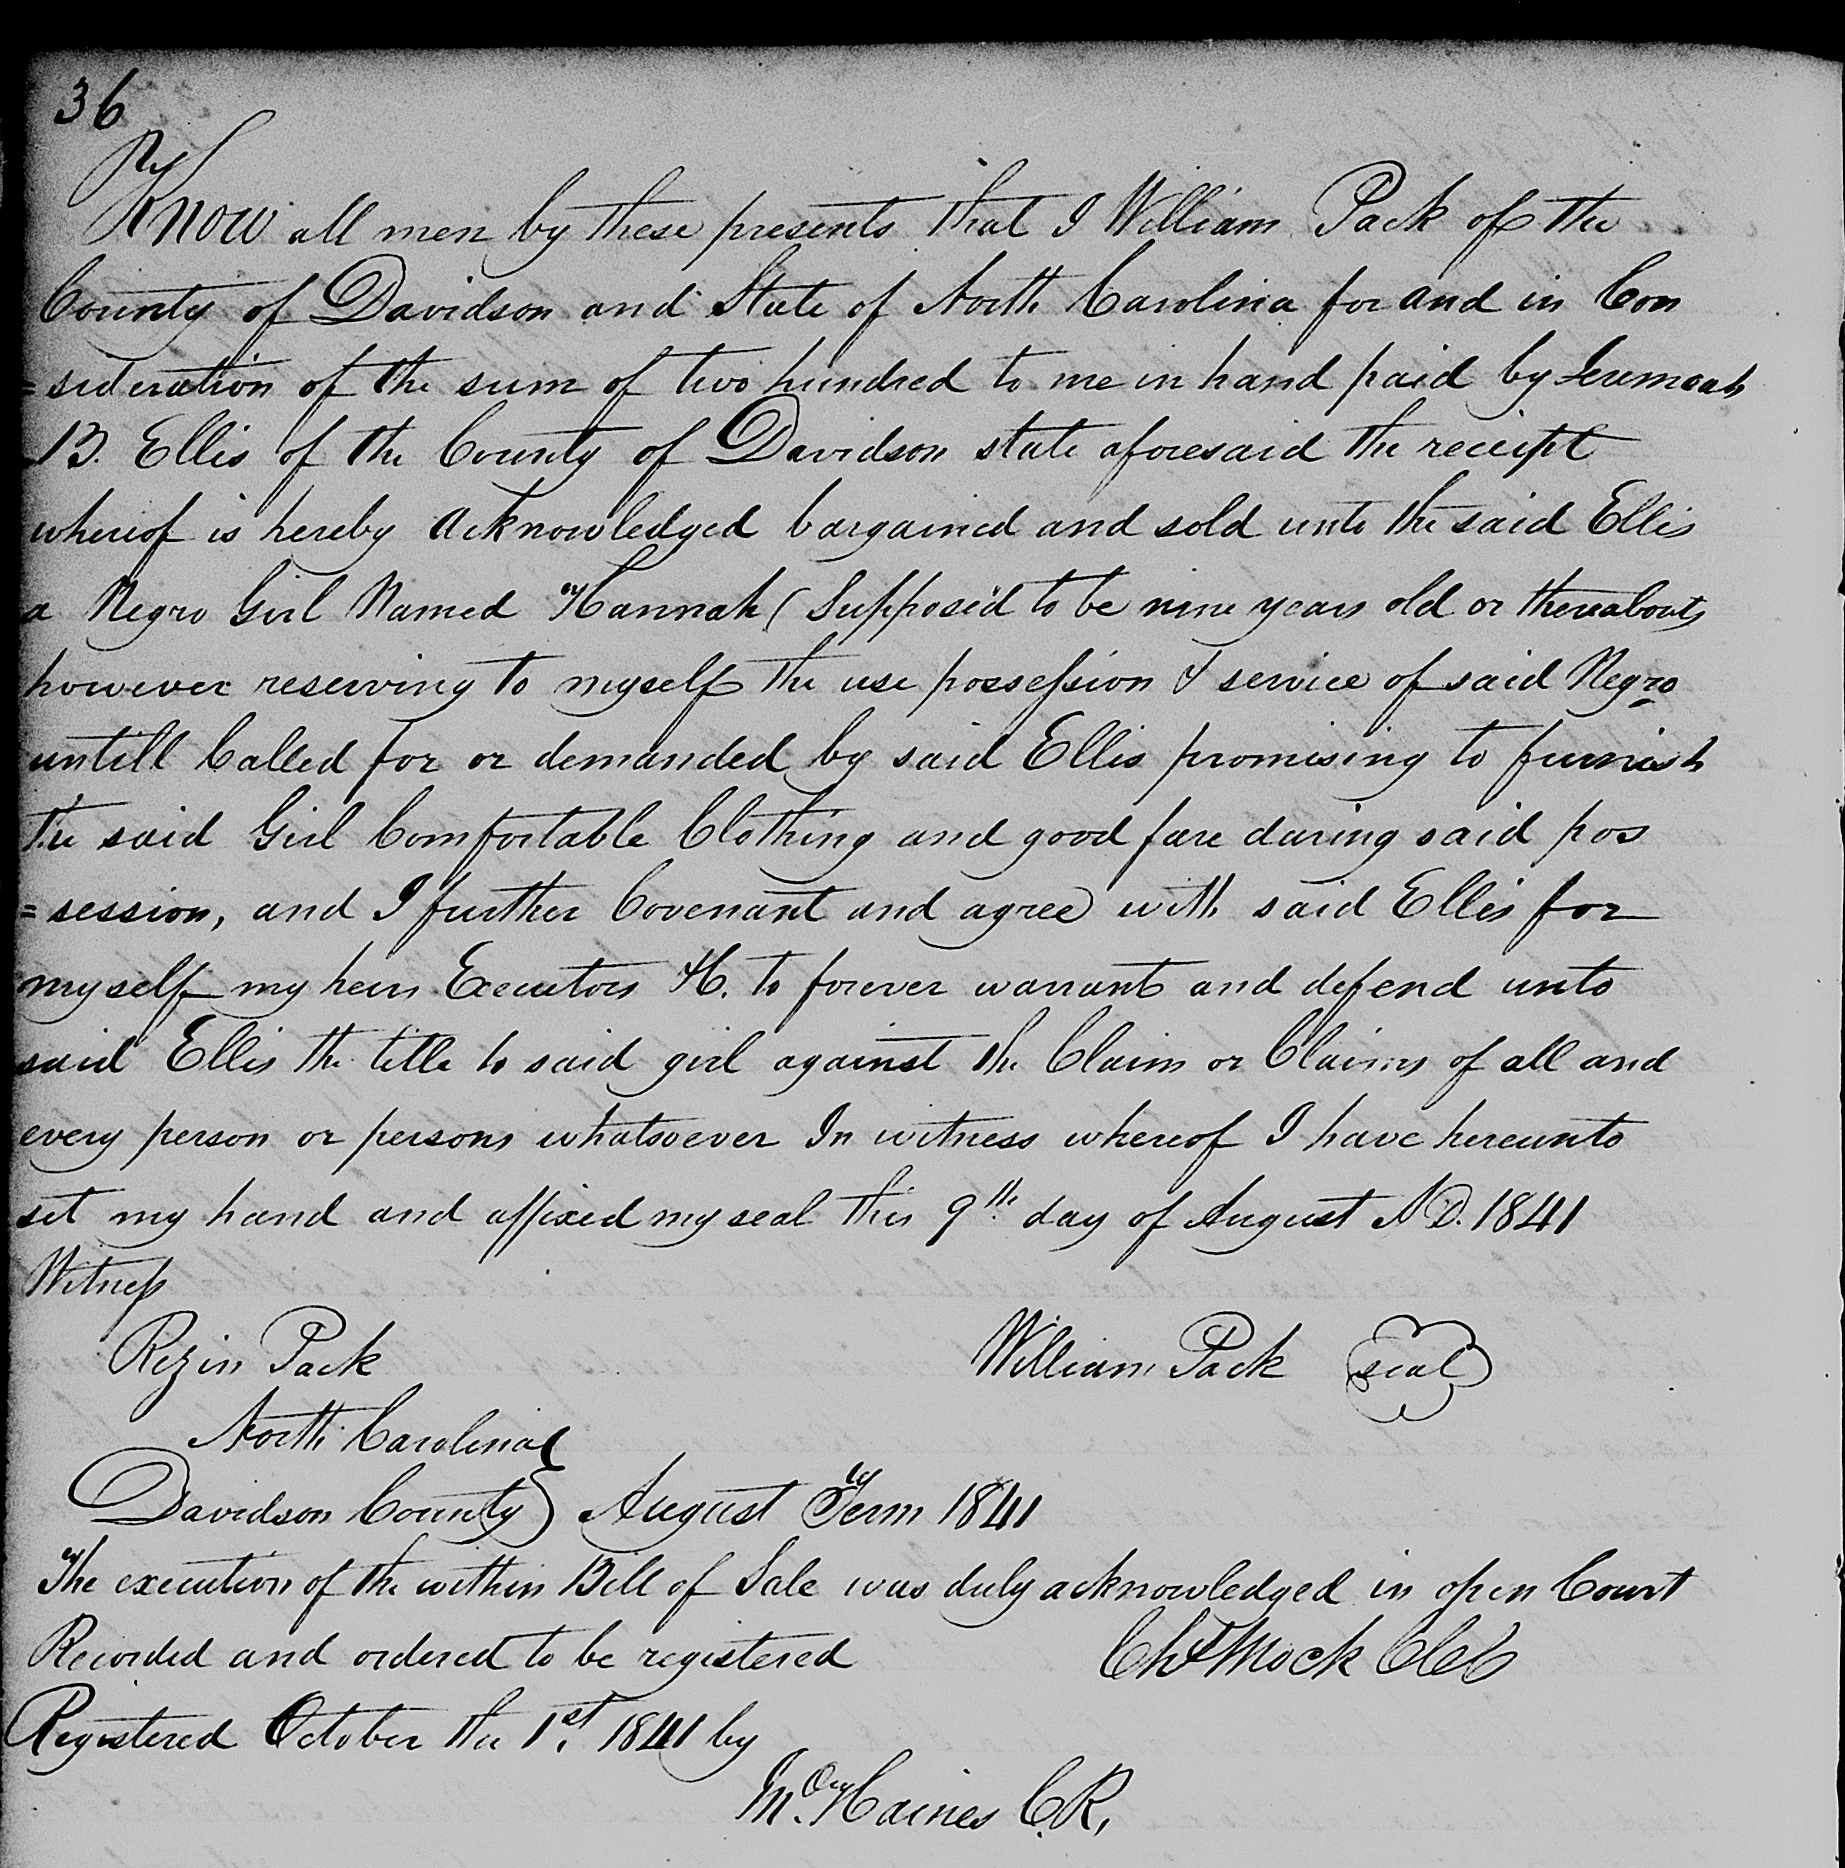 36
Know all men by these presents that I William Pack of the
County of Davidson and State of North Carolina for and in Con
=sideration of the sum of two hundred to me in hand paid by Jeremoah
B. Ellis of the County of Davidson state aforesaid the receipt
whereof is hereby acknowledged bargained and sold unto the said Ellis
a Negro Girl Named Hannah (Supposed to be nine years old or thereabouts
however reserving to myself the use possession & service of said Negro
untill Called for or demanded by said Ellis promising to furnish
the said Girl Comfortable Clothing and good fare during said pos
=session, and I further Covenant and agree with said Ellis for
myself my heirs Executors &C. to forever warrant and defend unto
said Ellis the title to said girl against the Claim or Claims of all and
every person or persons whatsoever In witness whereof I have hereunto
set my hand and affixed my seal this 9th day of August A.D. 1841
Witness
Rezin Pack William Pack seal
North Carolina
Davidson County } August Term 1841
The execution of the within Bill of Sale was duly acknowledged in open Court
Recorded and ordered to be registered Chs Mock
Registered October the 1st. 1841 by
Haines C.R.